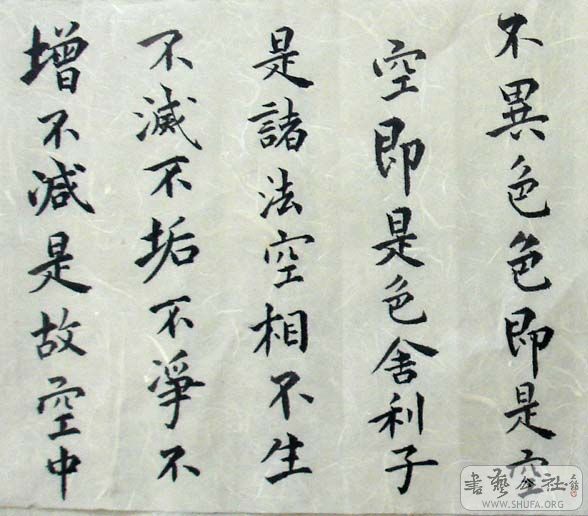 不異色色即是空
空即是色舍利子
是諸法空相不生
不滅不垢不淨不
增不減是故空中
書藝公社
WWW.SHUFA.ORG